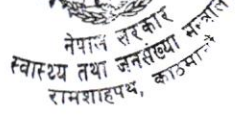 नेपाल सरकार
स्वास्थ्य तथा जनसंख्या मन्त्रालय
रामशाहपथ,